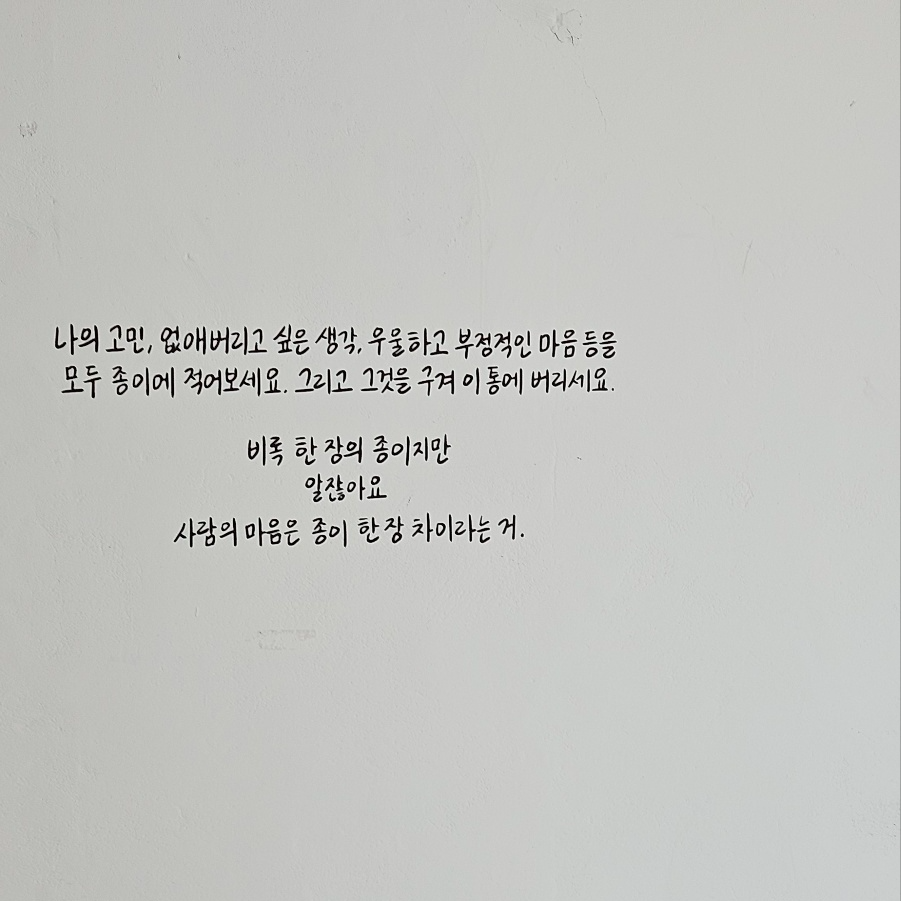 나의 고민, 없애버리고 싶은 생각, 우울하고 부정적인 마음 등을
모두 종이에 적어보세요. 그리고 그것을 구겨 이 통에 버리세요.
비록 한 장의 종이지만
알잖아요
사람의 마음은 종이 한 장 차이라는 거.